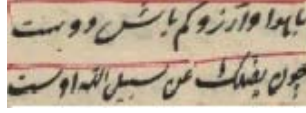 با هوا و آرزو کم باش دوست
چون یضلک عن سبیل الله اوست